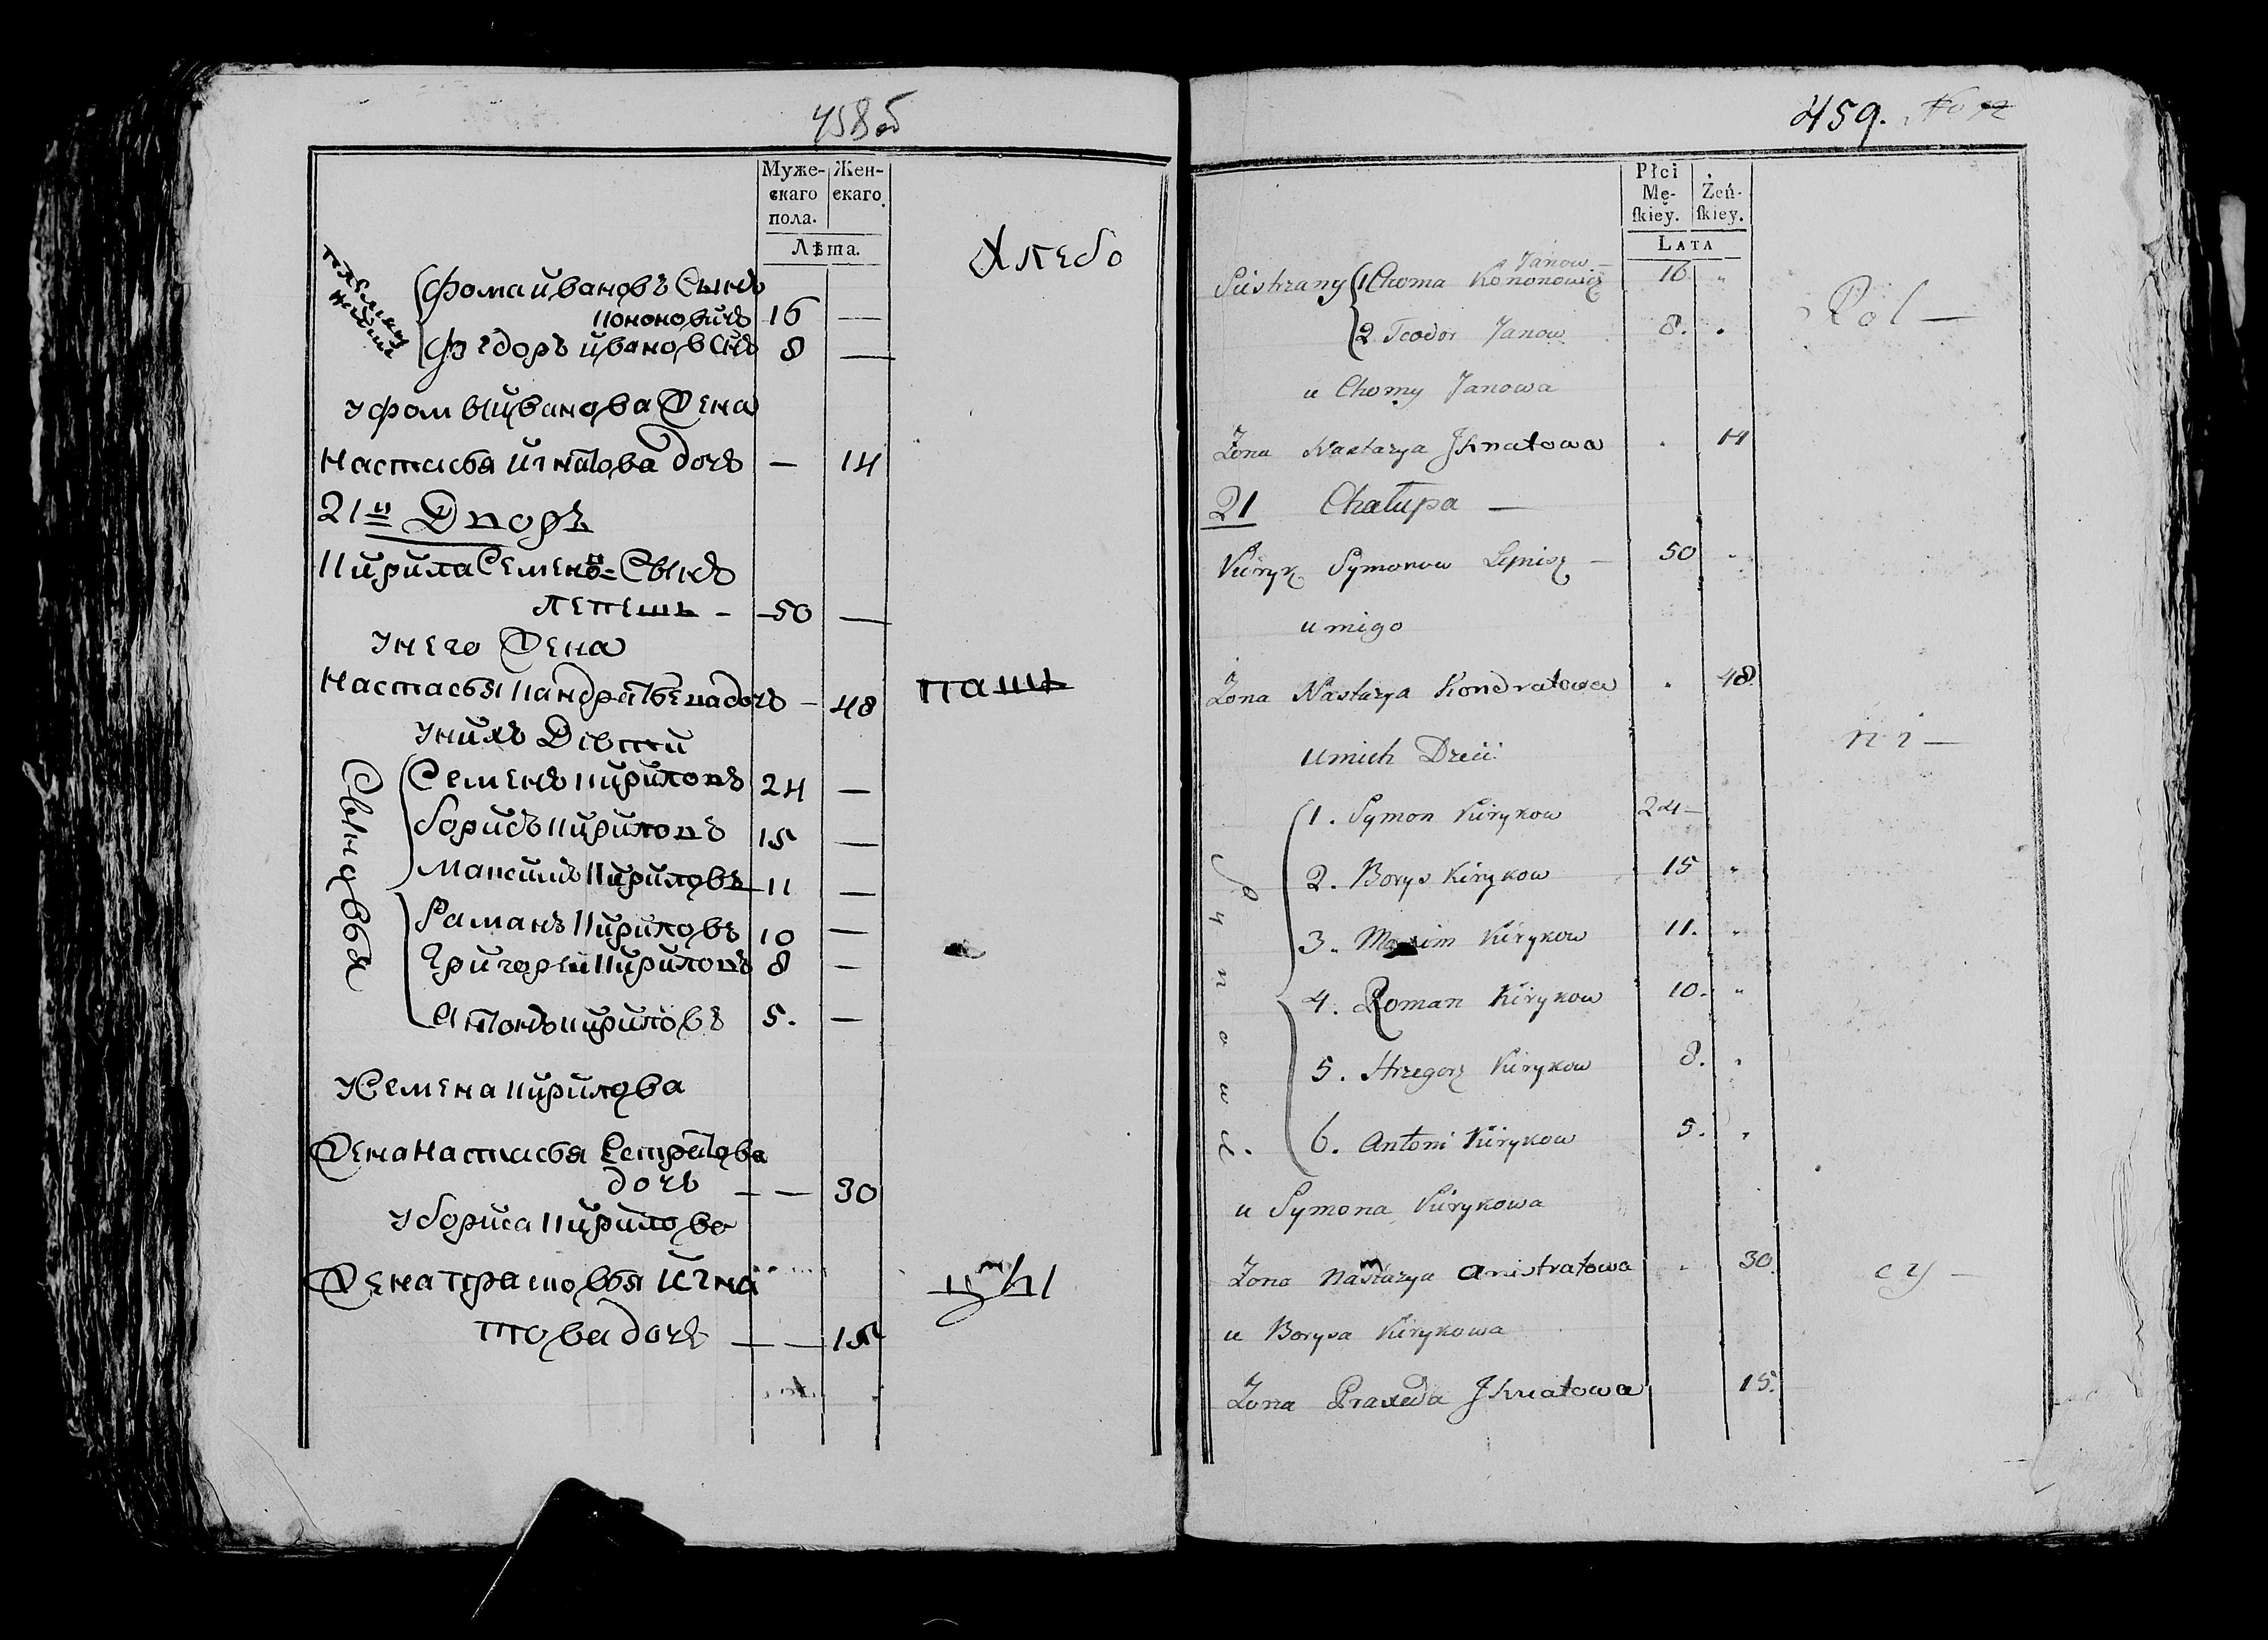 458об
Муже-
скаго
пола.
Жен-
скаго.
Лѣта.
Хлебо
племянники
Фома Ивановъ Сынъ
Кононовичъ 16 —
Федоръ Ивановъ Снъ 8 —
У Фомы Иванова Жена
Настасья Игнатова дочь — 14
21й Дворъ
Кирила Семеновъ Сынъ
Лепешъ — 50 —
У него Жена
Настасья Кандратьева дочь — 48
пашъ
У нихъ Дѣти
Сыновья
Семенъ Кириловъ 24 —
Борисъ Кириловъ 15 —
Максимъ Кириловъ 11 —
Раманъ Кириловъ 10 —
Григорей Кириловъ 8 —
Антонъ Кириловъ 5. —
У Семена Кирилова
Жена Настасья Естратова
дочь — — 30
У Бориса Кирилова
Жена Прасковья Игна
това дочь — — 15
цы
459.
Płci
Mę-
ſkiey.
Żeń-
ſkiey.
LATA
Janow —
Siestrzany 1 Choma Kononowicz 16 "
2 Teodor Janow 8. "
Rol —
u Chomy Janowa
Zona Nastazya Jhnatowa " 14
21 Chałupa —
Kiryk Symonow Lepisz — 50 "
u niego
Zona Nastazya Kondratowa " 48.
u nich Dzieci
ni —
Synowie.
1. Symon Kirykow 24 —
2. Borys Kirykow 15 "
3. Maxim Kirykow 11. "
4. Roman Kirykow 10. "
5. Hrzegorz Kirykow 8. "
6. Antoni Kirykow 5. "
u Symona Kirykowa
Zona Nastazya Anistratowa " 30.
cy —
u Borysa Kirykowa
Zona Praxeda Jhnatowa 15.